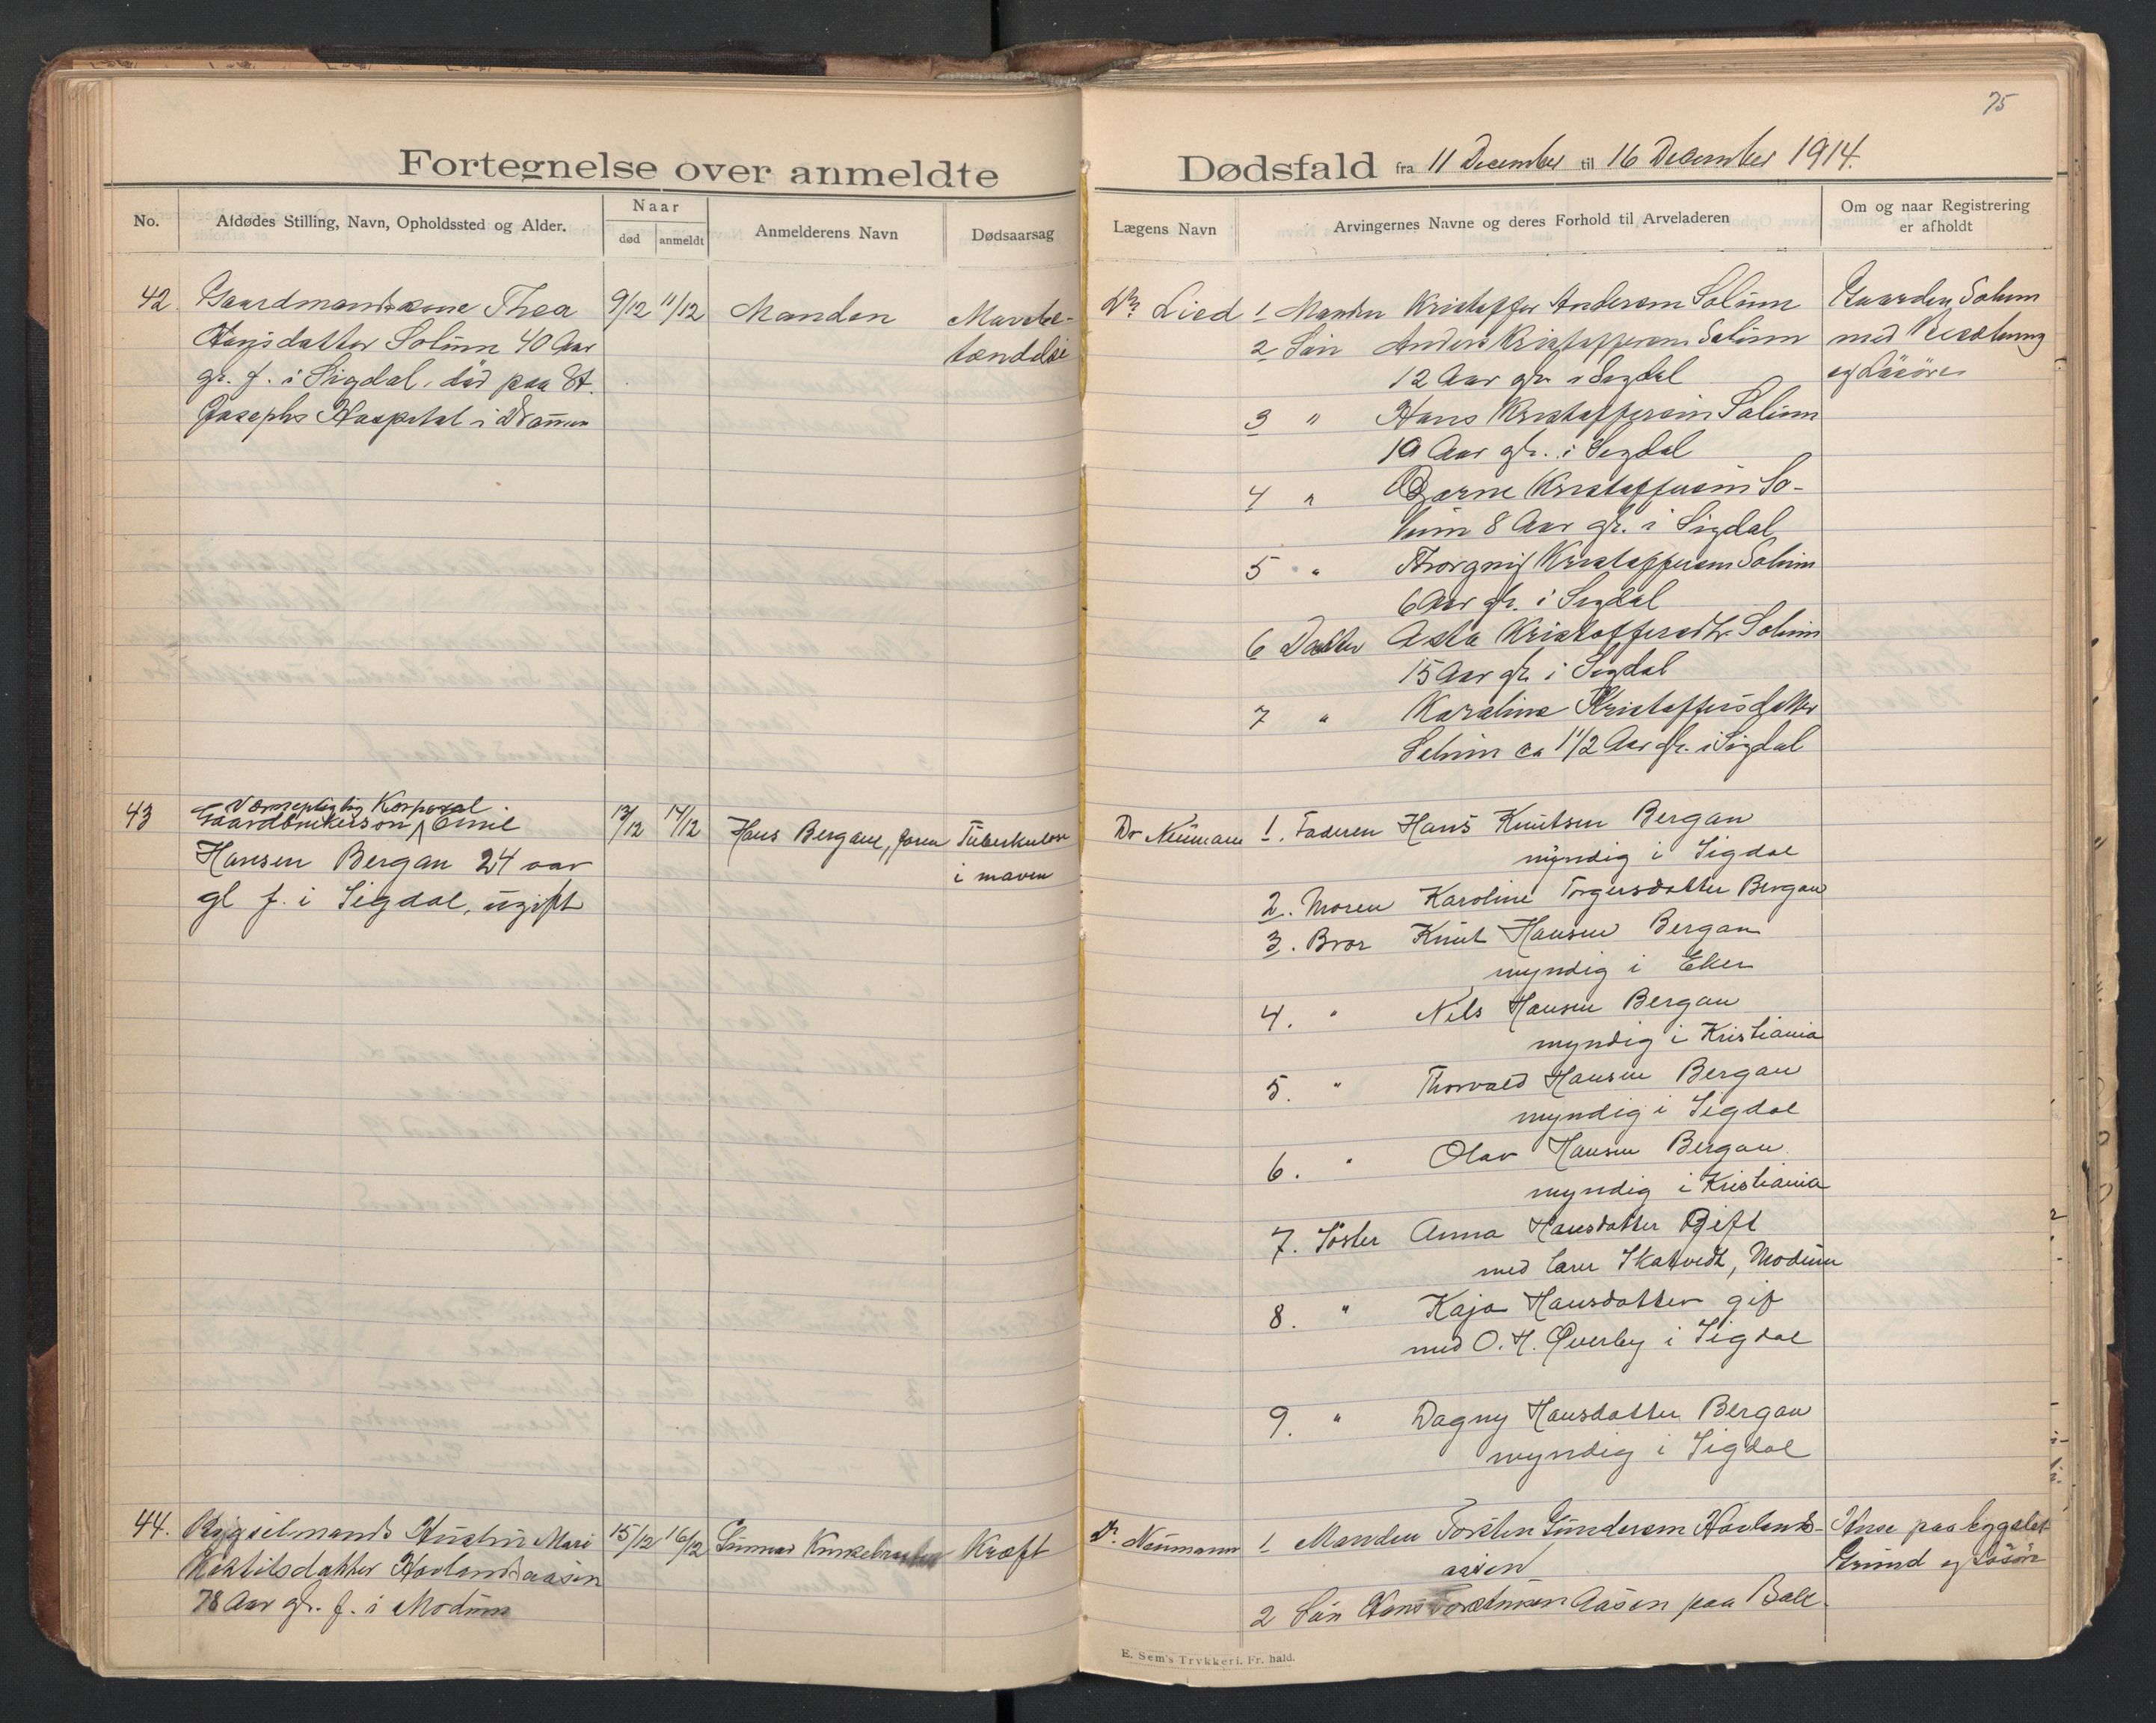 75
Fortegnelse over anmeldte Dødsfald fra 11 December til 16 December 1914.
No.
Afdødes Stilling, Navn, Opholdssted og Alder.
Naar
død
anmeldt
Anmelderens Navn
Dødsaarsag
Lægens Navn
Arvingernes Navne og deres Forhold til Arveladeren
Om og naar Registrering
er afholdt
42. Gaardmandskone Thea
Hansdatter Solum 40 Aar
gr. f. i Sigdal, död paa St.
Josephs Hospital i Drammen
9/12 11/12 Manden
Mavebe-
tændelse
Dr. Lied
1 Manden Kristoffer Andersen Solum
2 Sön Anders Kristoffersen Solum
12 Aar gr. i Sigdal
3 " Hans Kristoffersen Solum
10 Aar gr. i Sigdal
4 " Bjarne Kristoffersen So-
lum 8 Aar gr. i Sigdal
5 " Kristoffersen Solum
6 Aar gr. i Sigdal
6 Datter Asta Kristoffersdtr Solum
15 Aar gr. i Sigdal
7 " Karoline Kristoffersdatter
Solum ca 1 1/2 Aar gr. i Sigdal
Gaarden Solum
med Besætning
og Lösöre
43 Værnepligtig Korporal.
Gaardbrukersön, Emil
Hansen Bergan 24 aar
gl f. i Sigdal, ugift
13/12 14/12 Hans Bergan, faren
Tuberkulose
i maven
Dr Neumann
1. Faderen Hans Knutsen Bergan
myndig i Sigdal
2. Moren Karoline Torgersdatter Bergan
3. Bror Knut Hansen Bergan
myndig i Eker
4. " Nils Hansen Bergan
myndig i Kristiania
5. " Thorvald Hansen Bergan
myndig i Sigdal
6. " Olav Hansen Bergan
myndig i Kristiania
7. Söster Anna Hansdatter Gift
med Lars Skatvedt, Modum
8. " Kaja Hansdatter gif
med O. H. Överby i Sigdal
9. " Dagny Hansdatter Bergan
myndig i Sigdal
44. Bygselmands Hustru Mari
Kittilsdatter Hovlandsaasen
78 Aar gr. f. i Modum
15/12 16/12 Gunnar
Kræft
Dr. Neumann
1 Manden Torsten Gundersen Hovlands-
aasen
2 Sön Hans Torstensen Aasen paa
Huse paa bygslet
Grund og Lösöre
E. Sem's Trykkeri, Fr.hald.